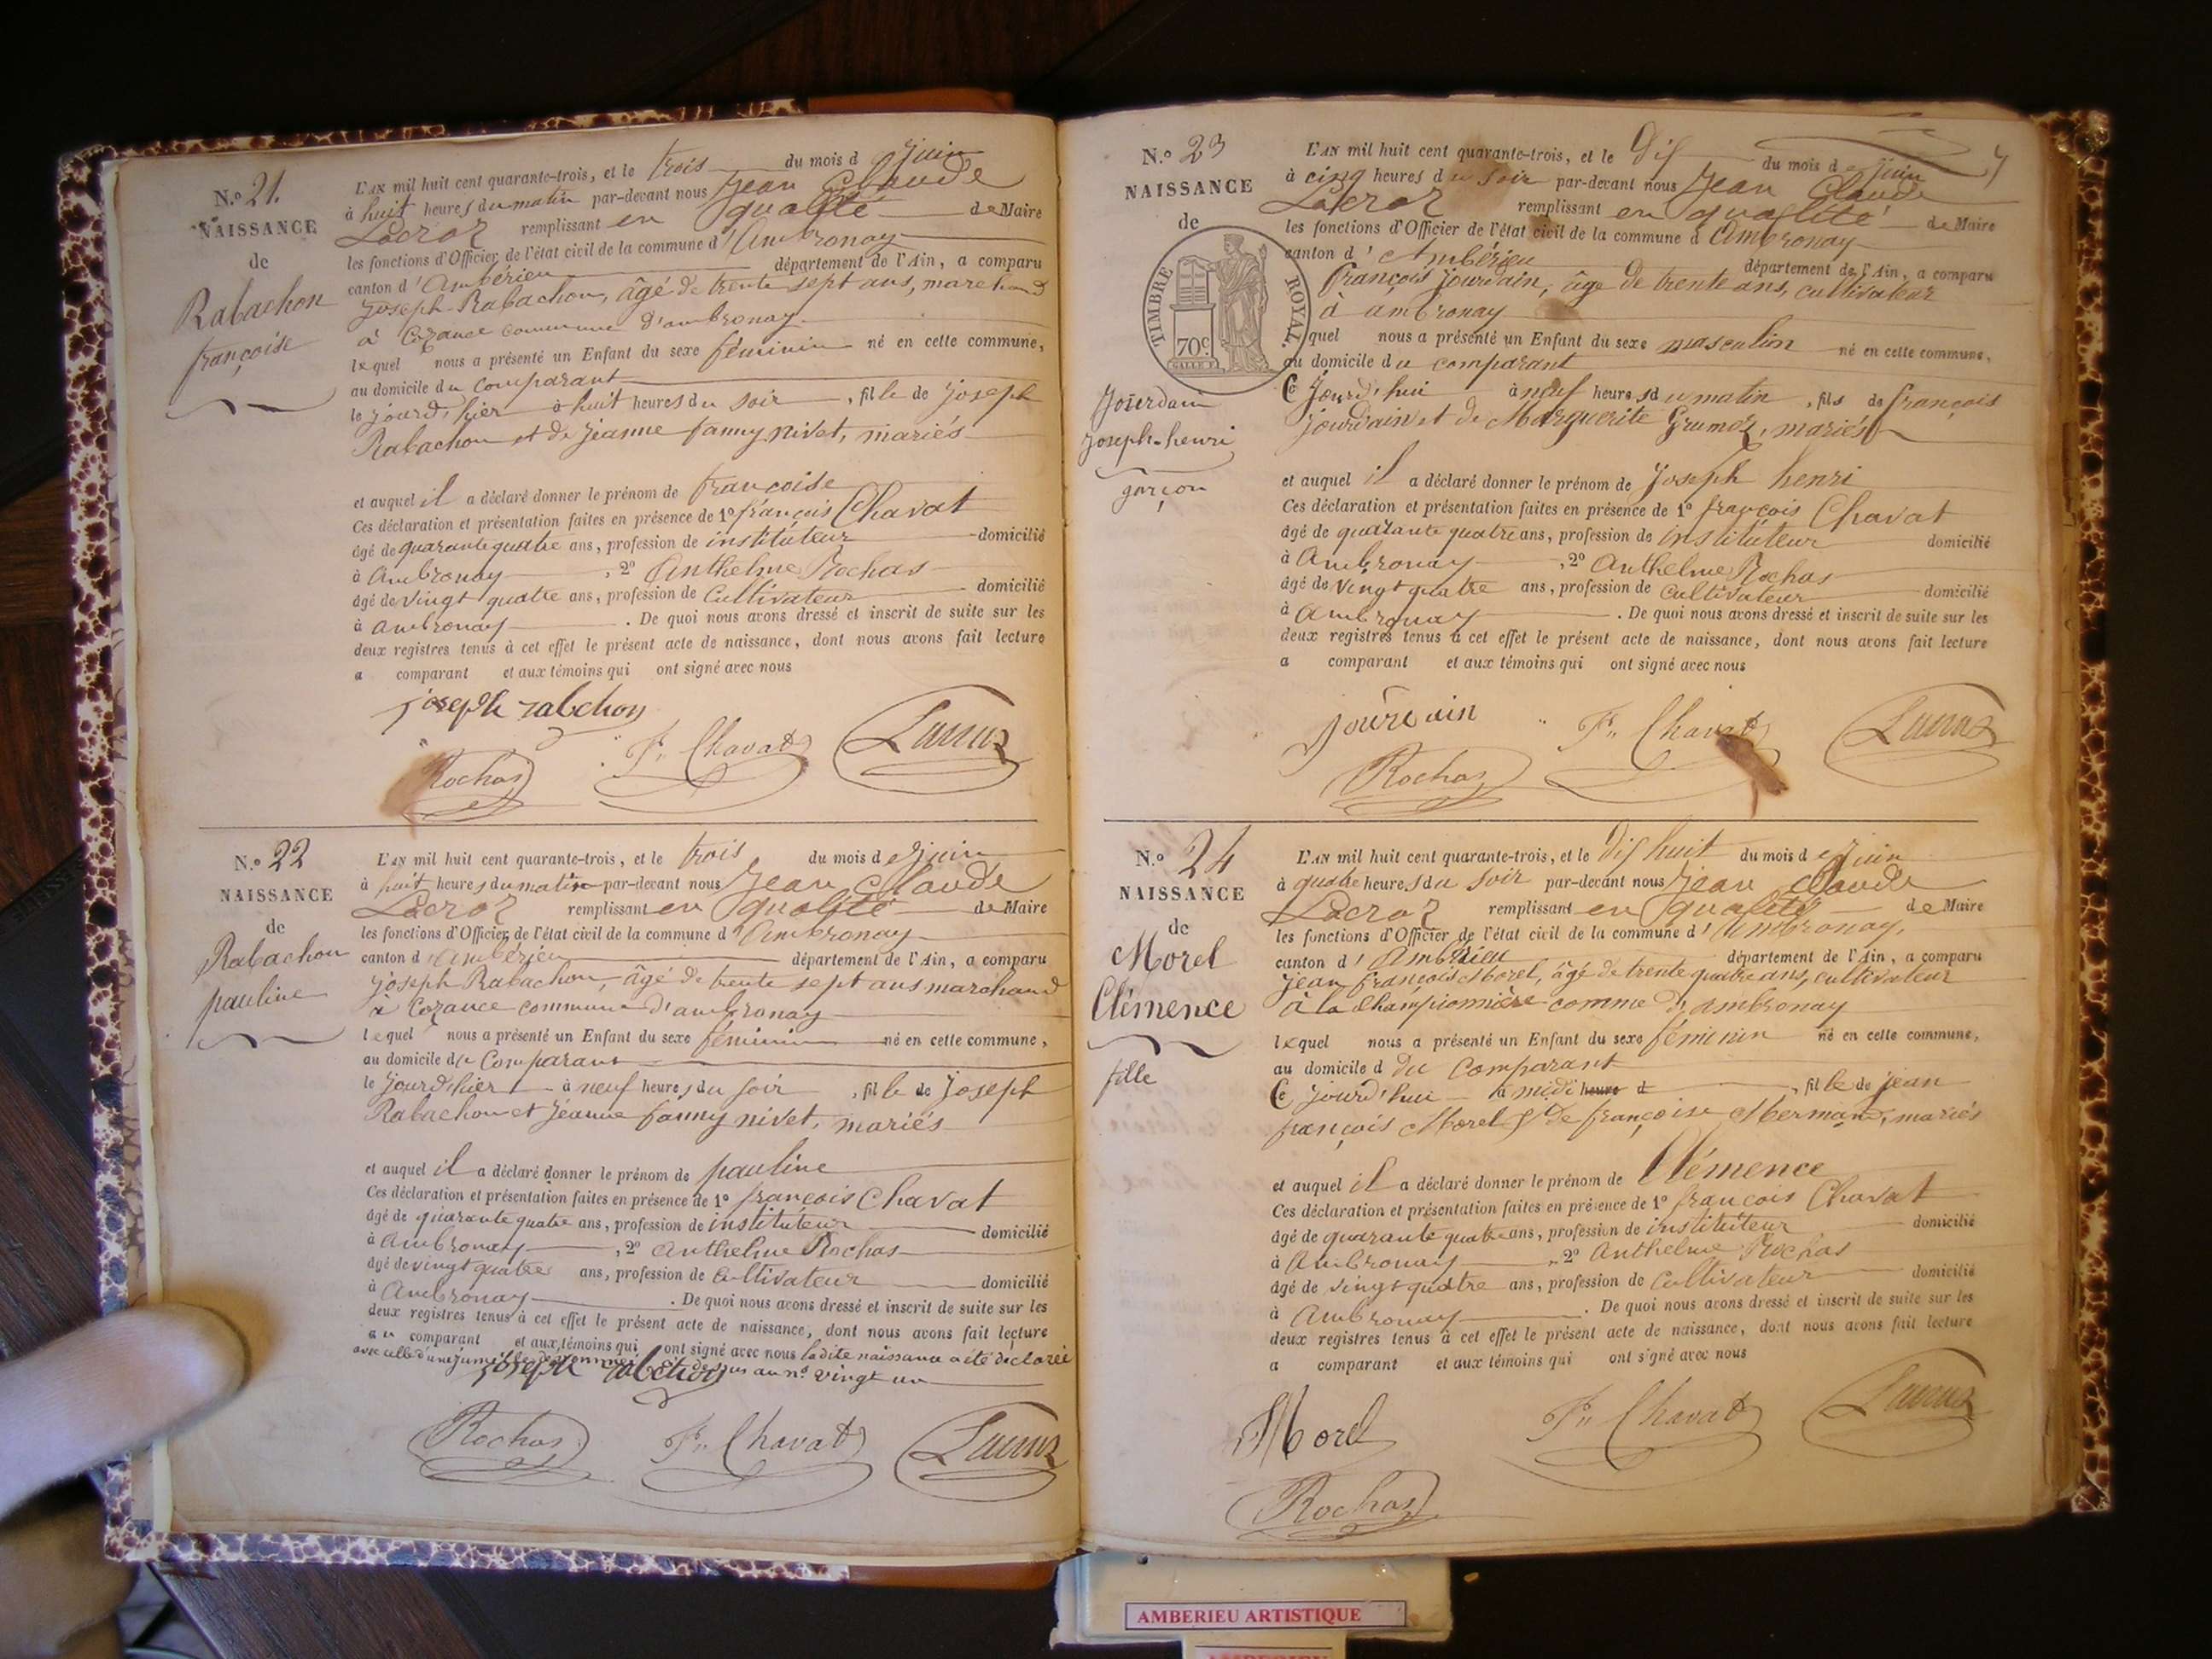 N.º 21.
NAISSANCE
de
Rabachon
françoise
L'AN mil huit cent quarante-trois, et le trois du mois d juin
à huit heures du matin par-devant nous Jean Claude
Lacroz remplissant en qualité de Maire
les fonctions d'Officier de l'état civil de la commune d'Ambronay
canton d'Ambérieu département de l'Ain, a comparu
joseph Rabachon, âgé de trente sept ans, marchand
à Cozance commune d'ambronay
lequel nous a présenté un Enfant du sexe féminin né en cette commune,
au domicile du comparant
le jourd'hier à huit heures du soir, fille de joseph
Rabachon et de jeanne fanny nivet, mariés
et auquel il a déclaré donner le prénom de françoise
Ces déclaration et présentation faites en présence de 1º françois Chavat
âgé de quarante quatre ans, profession de instituteur domicilié
à Ambronay, 2º Anthelme Rochas
âgé de vingt quatre ans, profession de Cultivateur domicilié
à ambronay. De quoi nous avons dressé et inscrit de suite sur les
deux registres tenus à cet effet le présent acte de naissance, dont nous avons fait lecture
a comparant et aux témoins qui ont signé avec nous
joseph rabchon
Rochas F. Chavat Lacroz
N.º 22
NAISSANCE
de
Rabachon
pauline
L'AN mil huit cent quarante-trois, et le trois du mois de juin
à huit heures du matin par-devant nous Jean Claude
Lacroz remplissant en qualité de Maire
les fonctions d'Officier de l'état civil de la commune d'Ambronay
canton d'Ambérieu département de l'Ain, a comparu
joseph Rabachon, âgé de trente sept ans marchand
à Cozance commune d'ambronay
lequel nous a présenté un Enfant du sexe féminin né en cette commune,
au domicile du Comparant
le jourd'hier à neuf heures du soir, fille de joseph
Rabachon et jeanne fanny nivet, mariés
et auquel il a déclaré donner le prénom de pauline
Ces déclaration et présentation faites en présence de 1º françois Chavat
âgé de quarante quatre ans, profession de instituteur domicilié
à Ambronay, 2º Anthelme Rochas
âgé de vingt quatre ans, profession de Cultivateur domicilié
à Ambronay. De quoi nous avons dressé et inscrit de suite sur les
deux registres tenus à cet effet le présent acte de naissance, dont nous avons fait lecture
au comparant et aux témoins qui ont signé avec nous ladite naissance a été déclarée
avec celle d'une jumelle ci dessus au nº vingt un
joseph rabchon
Rochas F. Chavat Lacroz
N.º 23
NAISSANCE
de
TIMBRE ROYAL.
70c
Jourdain
joseph-henri
garçon
L'AN mil huit cent quarante-trois, et le Dix du mois de juin
à cinq heures du soir par-devant nous Jean Claude
Lacroz remplissant en qualité de Maire
les fonctions d'Officier de l'état civil de la commune d Ambronay
canton d'Ambérieu département de l'Ain, a comparu
françois jourdain, âgé de trente ans, cultivateur
à ambronay
quel nous a présenté un Enfant du sexe masculin né en cette commune,
au domicile du comparant
Ce jourd'hui à neuf heures du matin, fils de françois
jourdain et de Marguerite Grumoz, mariés
et auquel il a déclaré donner le prénom de joseph henri
Ces déclaration et présentation faites en présence de 1º françois Chavat
âgé de quarante quatre ans, profession de instituteur domicilié
à Ambronay, 2º Anthelme Rochas
âgé de vingt quatre ans, profession de cultivateur domicilié
à Ambronay. De quoi nous avons dressé et inscrit de suite sur les
deux registres tenus à cet effet le présent acte de naissance, dont nous avons fait lecture
a comparant et aux témoins qui ont signé avec nous
jourdain F. Chavat Lacroz
Rochas
N.º 24
NAISSANCE
de
Morel
Clémence
fille
L'AN mil huit cent quarante-trois, et le dix huit du mois de juin
à quatre heures du soir par-devant nous Jean Claude
Lacroz remplissant en qualité de Maire
les fonctions d'Officier de l'état civil de la commune d'Ambronay,
canton d'Ambérieu département de l'Ain, a comparu
jean françois Morel, âgé de trente quatre ans, cultivateur
à la Championnière comme d'ambronay
lequel nous a présenté un Enfant du sexe féminin né en cette commune,
au domicile d du Comparant
Ce jourd'hui à midi heure d, fille de jean
françois Morel & de françoise Mermand, mariés
et auquel il a déclaré donner le prénom de Clémence
Ces déclaration et présentation faites en présence de 1º françois Chavat
âgé de quarante quatre ans, profession de instituteur domicilié
à Ambronay, 2º Anthelme Rochas
âgé de vingt quatre ans, profession de Cultivateur domicilié
à Ambronay. De quoi nous avons dressé et inscrit de suite sur les
deux registres tenus à cet effet le présent acte de naissance, dont nous avons fait lecture
a comparant et aux témoins qui ont signé avec nous
Morel F. Chavat Lacroz
Rochas
AMBERIEU ARTISTIQUE